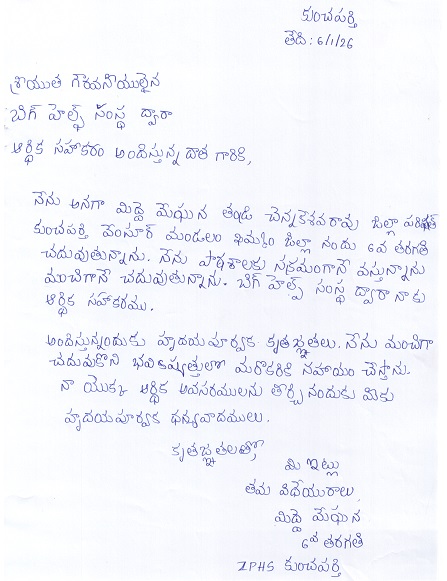 కుంచపర్తి
తేది: 6/1/26
శ్రీయుత గౌరవనీయులైన
బిగ్ హెల్ప్ సంస్థ ద్వారా
ఆర్థిక సహకారం అందిస్తున్న దాత గారికి,
నేను అనగా మిద్దె మేఘన తండ్రి చెన్నకేశవరావు జిల్లా పరిషత్
కుంచపర్తి వేంసూర్ మండలం ఖమ్మం జిల్లా నందు 6వ తరగతి
చదువుతున్నాను. నేను పాఠశాలకు సక్రమంగానే వస్తున్నాను
మంచిగానే చదువుతున్నాను. బిగ్ హెల్ప్ సంస్థ ద్వారా నాకు
ఆర్థిక సహకారము.
అందిస్తున్నందుకు హృదయపూర్వక కృతజ్ఞతలు. నేను మంచిగా
చదువుకొని భవిష్యత్తులో మరొకరికి సహాయం చేస్తాను.
నా యొక్క ఆర్థిక అవసరములను తీర్చినందుకు మీకు
హృదయపూర్వక ధన్యవాదములు.
కృతజ్ఞతలతో
మీ ఇట్లు
తమ విధేయురాలు
మిద్దె మేఘన
6వ తరగతి
ZPHS కుంచపర్తి